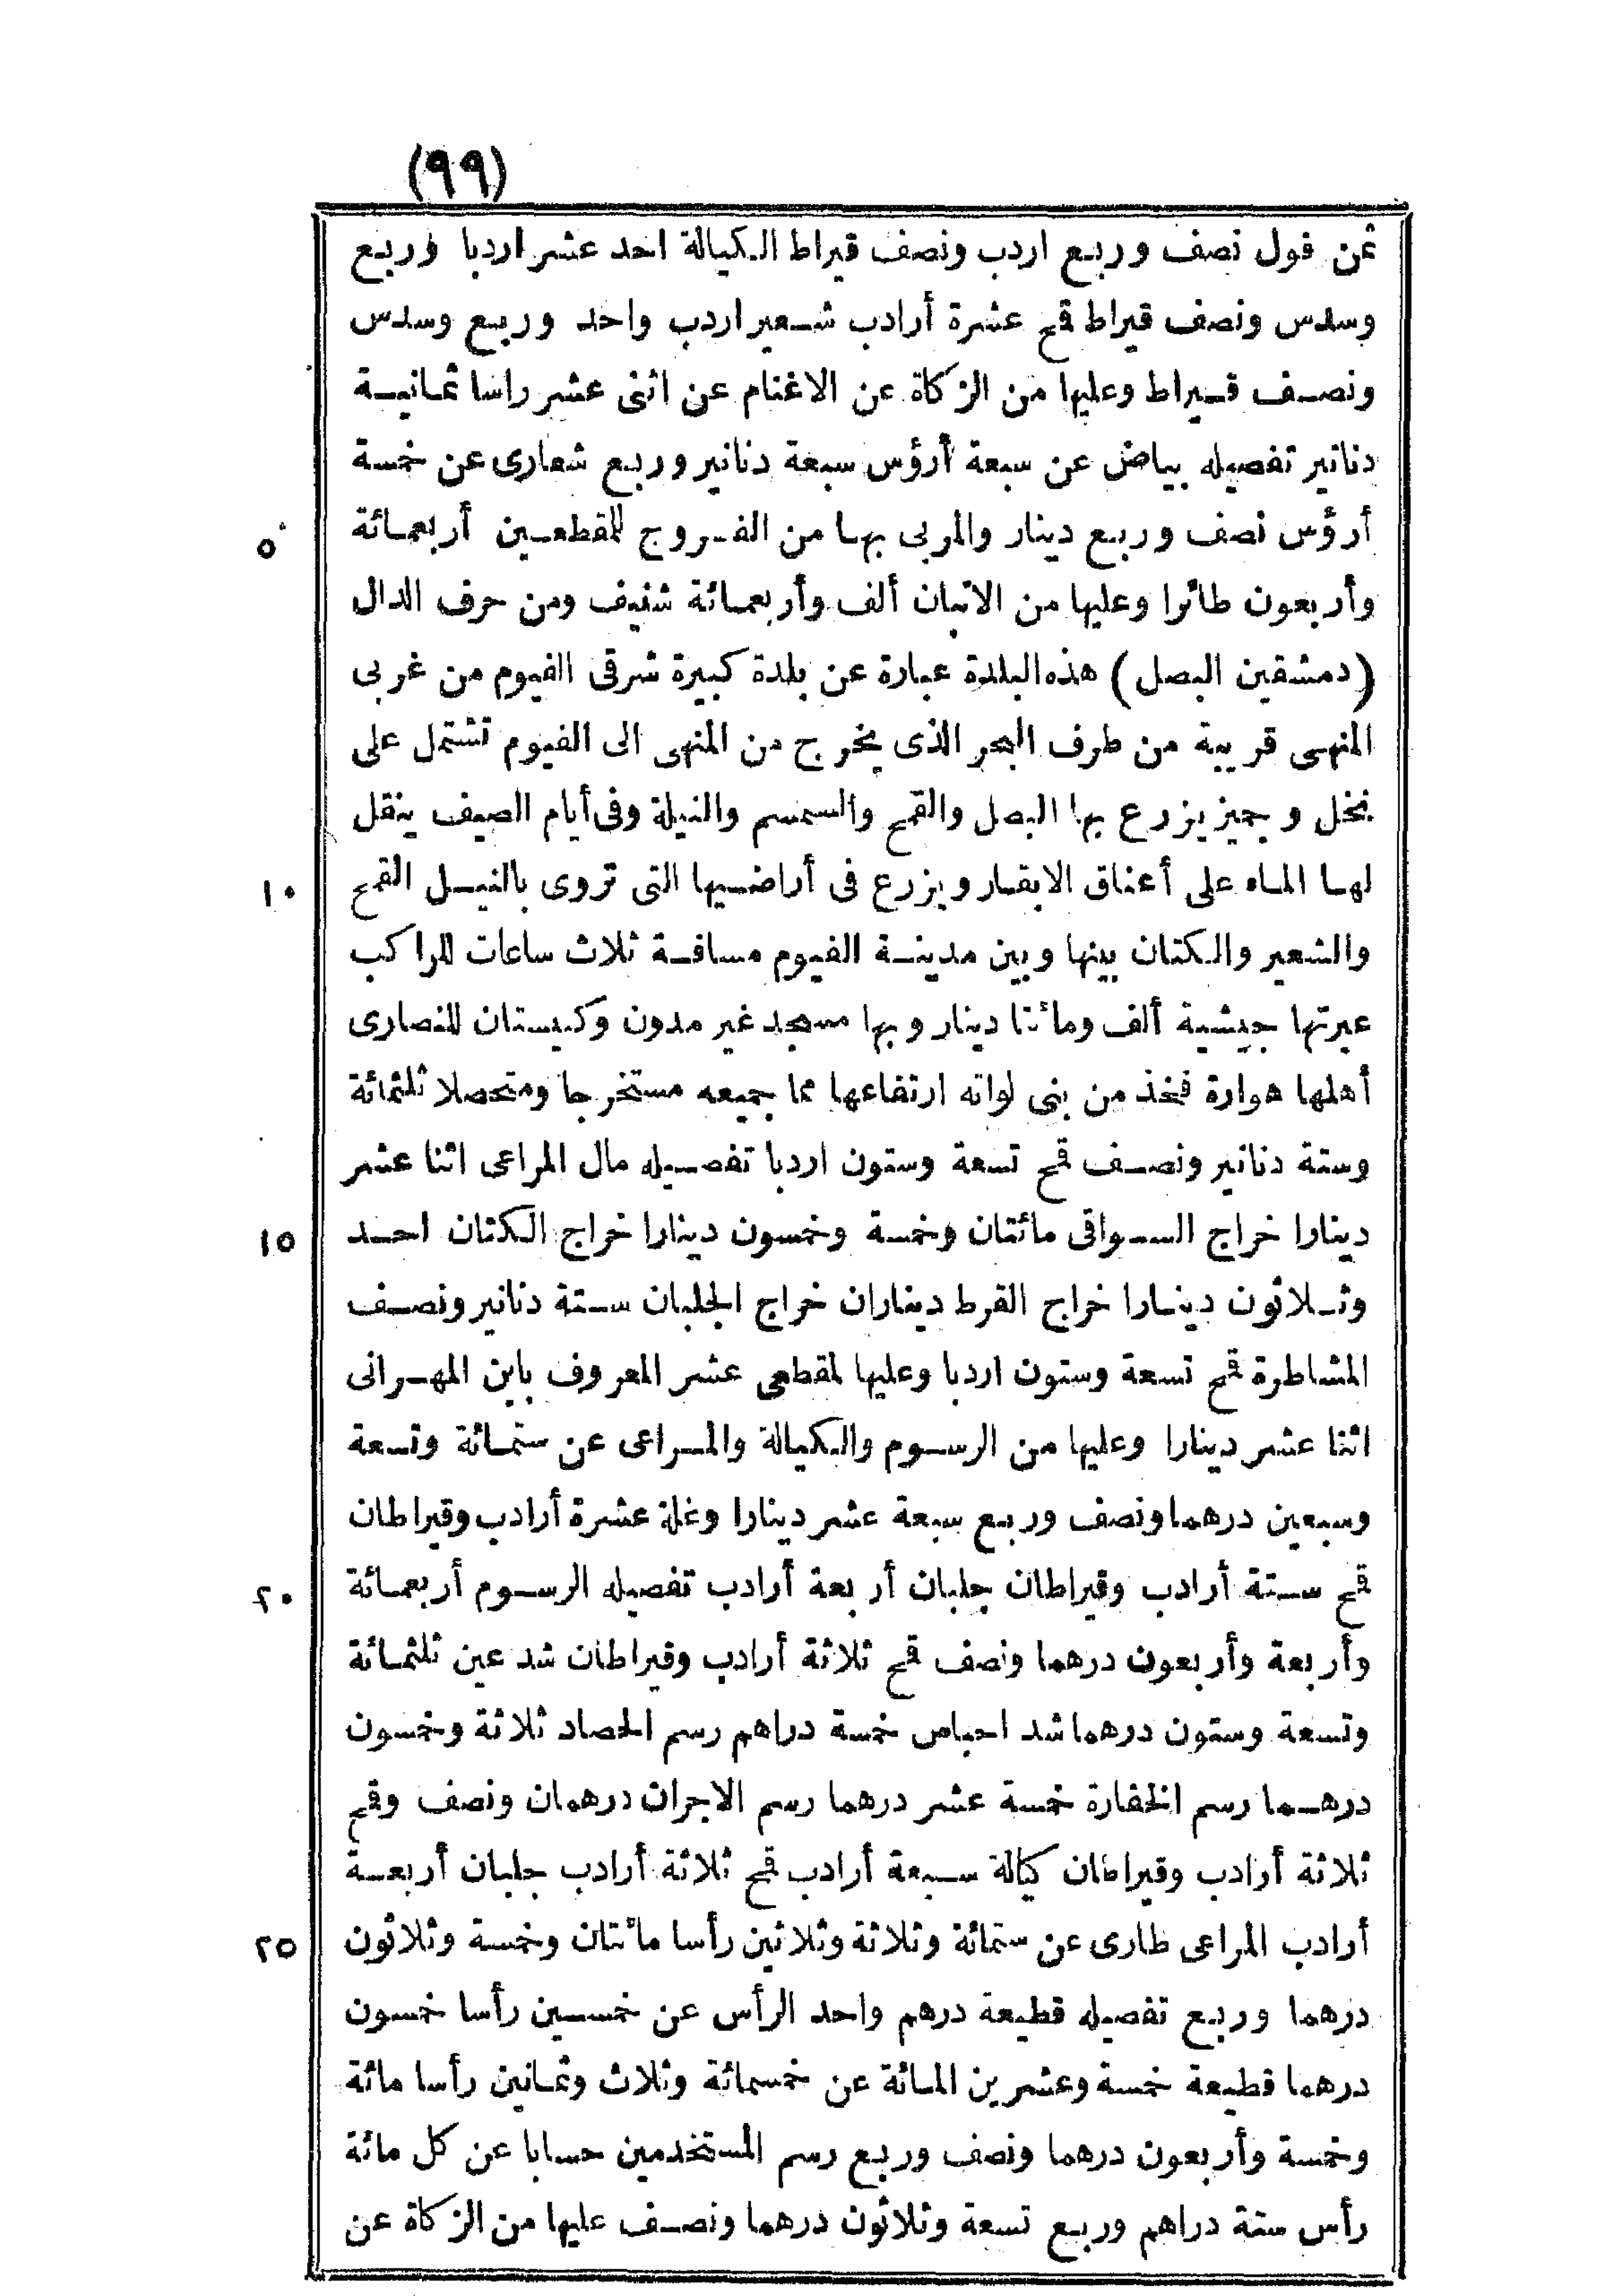 (٩٩)
ثمن فول نصف وربع اردب ونصف قيراط الكيالة احد عشر اردبا وربع
وسدس ونصف قيراط قمح عشرة أرادب شعير اردب واحد وربع وسدس
ونصف قيراط وعليها من الزكاة عن الاغنام عن اثنى عشر راسا ثمانية
دنانير تفصيله بياض عن سبعة أرؤس سبعة دنانير وربع شعارى عن خمسة
٥ أرؤس نصف وربع دينار والمربى بها من الفروج للمقطعين أربعمائة
وأربعون طائرا وعليها من الاتبان ألف وأربعمائة شنيف ومن حرف الدال
(دمشقين البصل) هذه البلدة عبارة عن بلدة كبيرة شرقى الفيوم من غربى
المنهى قريبة من طرف البحر الذى يخرج من المنهى الى الفيوم تشتمل على
نخل وجميز يزرع بها البصل والقمح والسمسم والنيلة وفى أيام الصيف ينقل
١٠ لها الماء على أعناق الابقار ويزرع فى أراضيها التى تروى بالنيل القمح
والشعير والكتان بينها وبين مدينة الفيوم مسافة ثلاث ساعات للراكب
عبرتها جيشية ألف ومائتا دينار وبها مسجد غير مدون وكنيستان للنصارى
أهلها هوارة فخذ من بنى لواته ارتفاعها مما جميعه مستخرجا ومتحصلا ثلثمائة
وستة دنانير ونصف قمح تسعة وستون اردبا تفصيله مال المراعى اثنا عشر
١٥ دينارا خراج السواقى مائتان وخمسة وخمسون دينارا خراج الكتان احد
وثلاثون دينارا خراج القرط ديناران خراج الجلبان ستة دنانير ونصف
المشاطرة قمح تسعة وستون اردبا وعليها لمقطعى عشر المعروف بابن المهرانى
اثنا عشر دينارا وعليها من الرسوم والكيالة والمراعى عن ستمائة وتسعة
وسبعين درهما ونصف وربع سبعة عشر دينارا وغلة عشرة أرادب وقيراطان
٢٠ قمح ستة أرادب وقيراطان جلبان أربعة أرادب تفصيله الرسوم أربعمائة
وأربعة وأربعون درهما ونصف قمح ثلاثة أرادب وقيراطان شد عين ثلثمائة
وتسعة وستون درهما شد احباس خمسة دراهم رسم الحصاد ثلاثة وخمسون
درهما رسم الخفارة خمسة عشر درهما رسم الاجران درهمان ونصف وقمح
ثلاثة أرادب وقيراطان كيالة سبعة أرادب قمح ثلاثة أرادب جلبان أربعة
٢٥ أرادب المراعى طارى عن ستمائة وثلاثة وثلاثين رأسا مائتان وخمسة وثلاثون
درهما وربع تفصيله قطيعة درهم واحد الرأس عن خمسين رأسا خمسون
درهما قطيعة خمسة وعشرين المائة عن خمسمائة وثلاث وثمانين رأسا مائة
وخمسة وأربعون درهما ونصف وربع رسم المستخدمين حسابا عن كل مائة
رأس ستة دراهم وربع تسعة وثلاثون درهما ونصف عليها من الزكاة عن